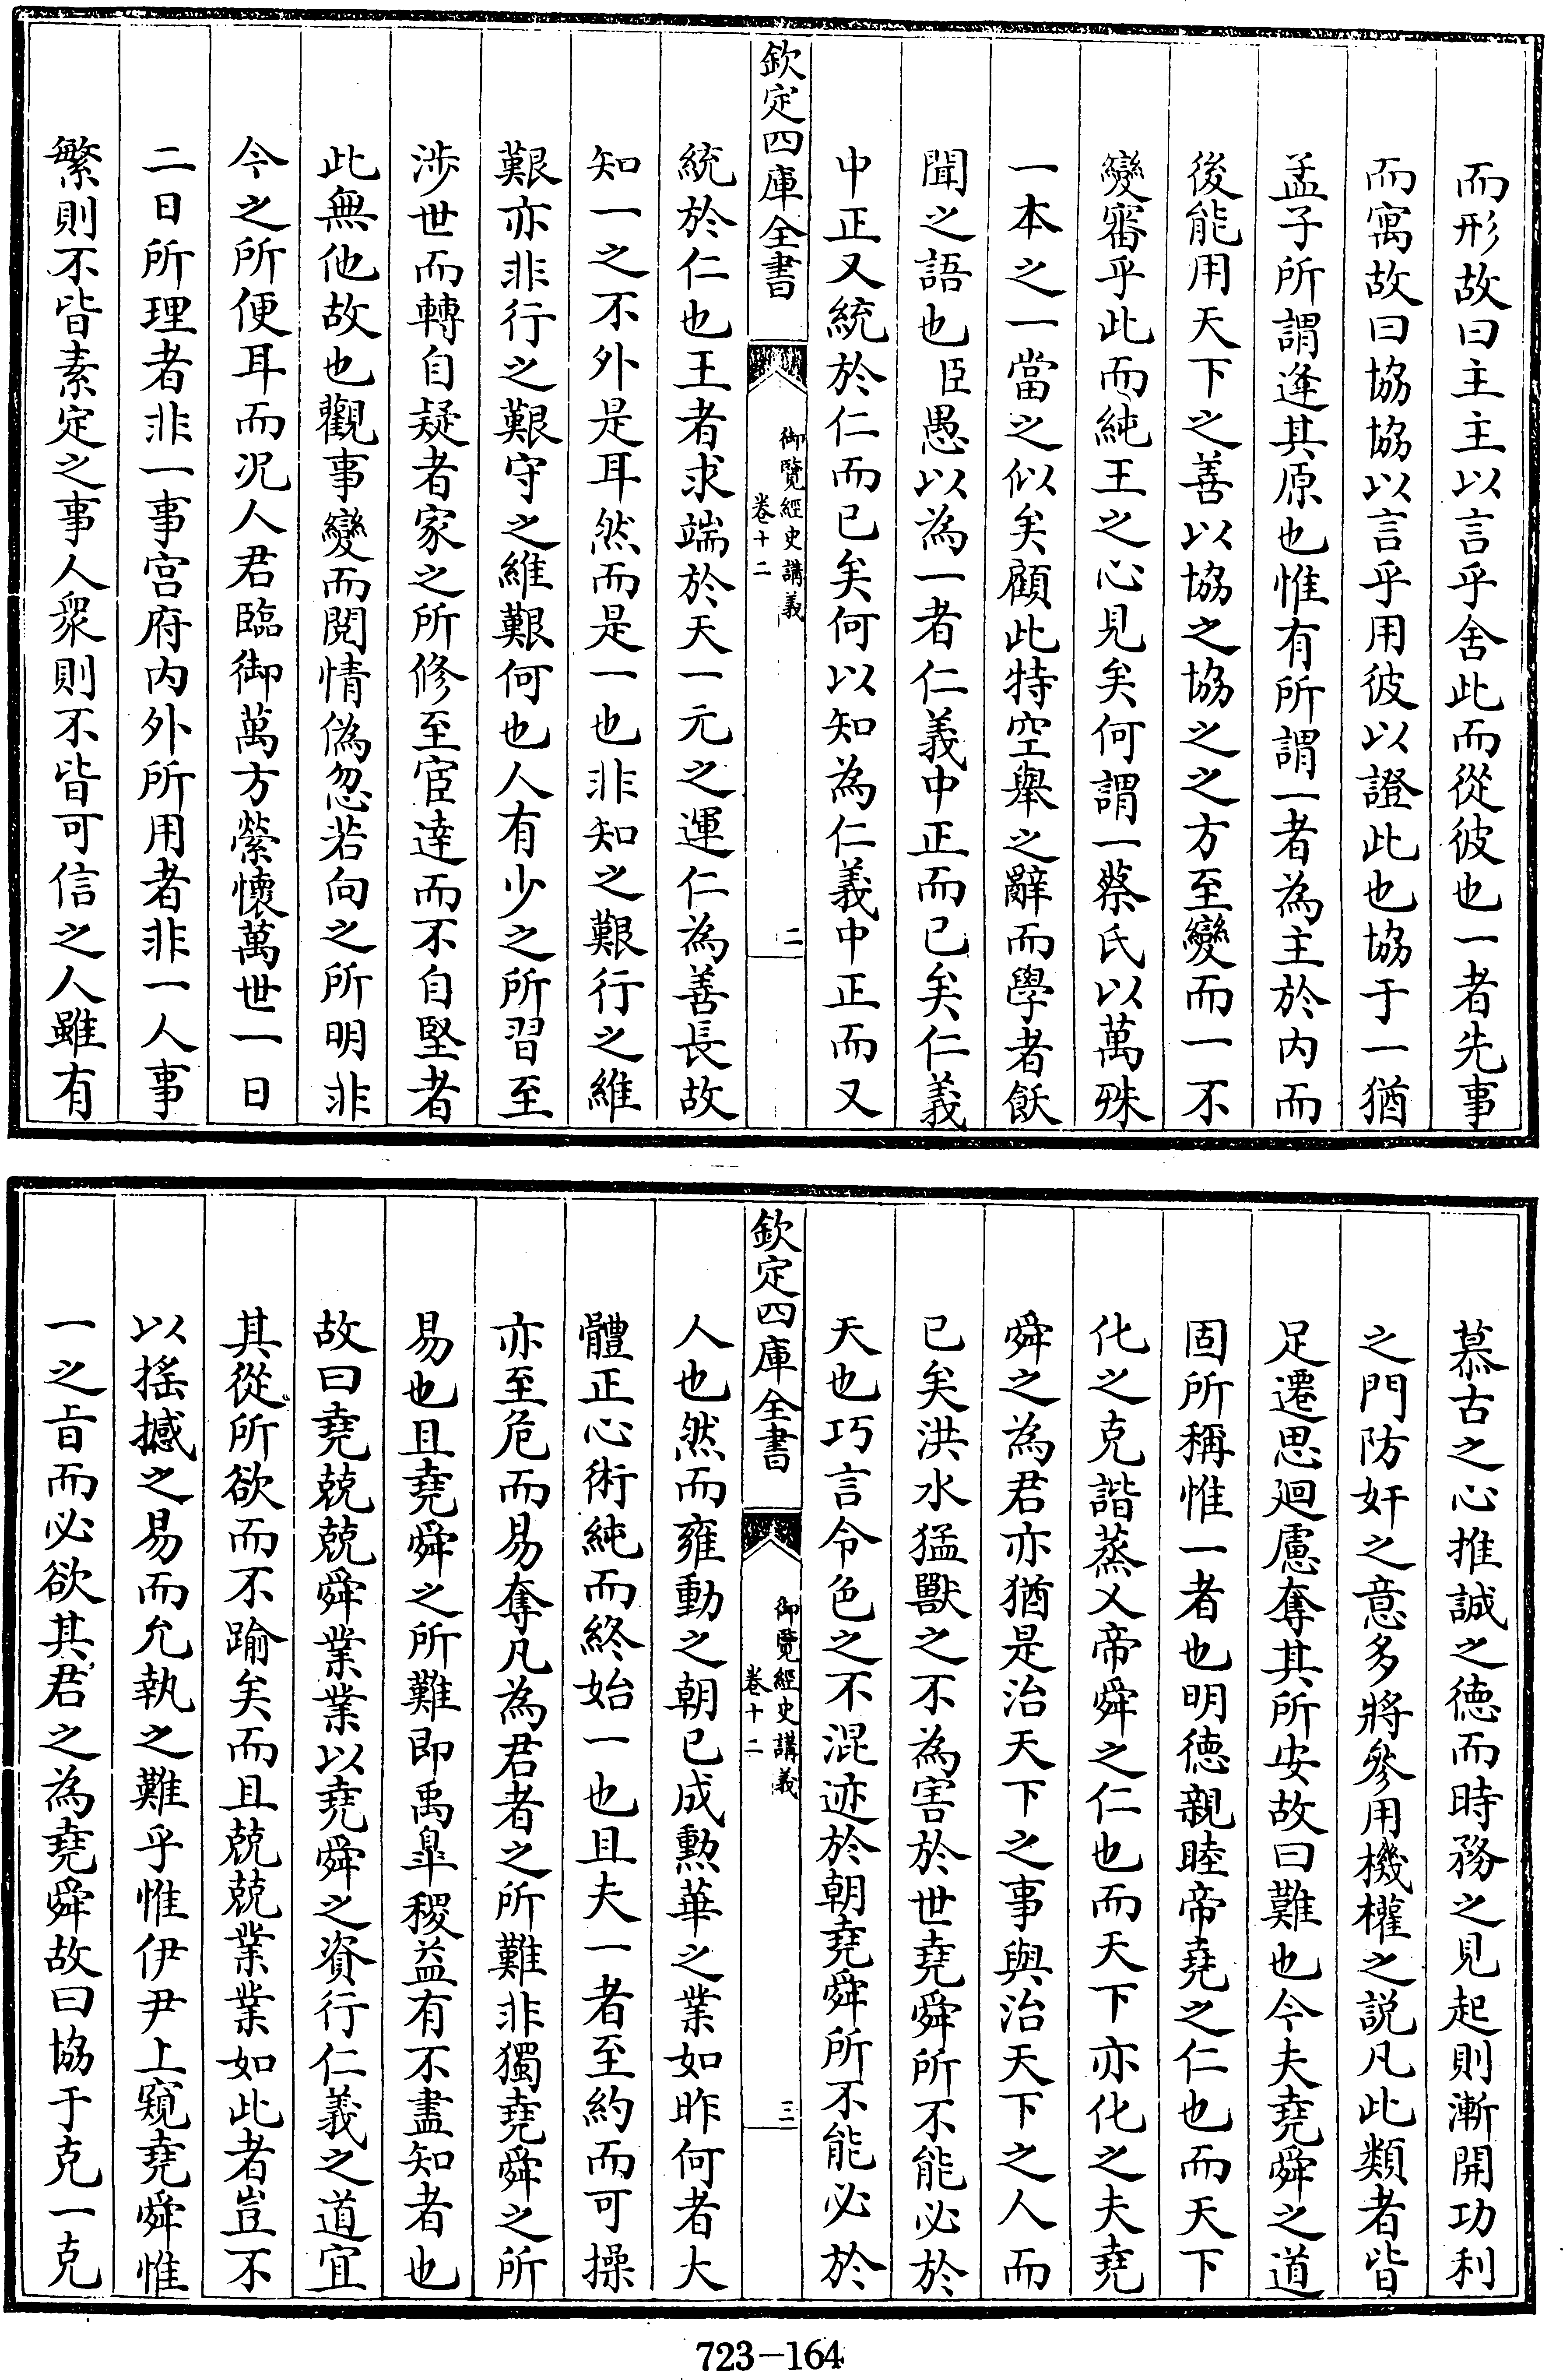 而形故曰主主以言乎舍此而從彼也一者先事
而寓故曰協協以言乎用彼以證此也協于一猶
孟子所謂逢其原也惟有所謂一者為主於内而
後能用天下之善以協之協之之方至變而一不
變審乎此而純王之心見矣何謂一蔡氏以萬殊
一本之一當之似矣顧此特空舉之辭而學者飫
聞之語也臣愚以為一者仁義中正而已矣仁義
中正又統於仁而已矣何以知為仁義中正而又
欽定四庫全書
御覽經史講義
卷十二
二
統於仁也王者求端於天一元之運仁為善長故
知一之不外是耳然而是一也非知之艱行之維
艱亦非行之艱守之維艱何也人有少之所習至
涉世而轉自疑者家之所修至宦達而不自堅者
此無他故也觀事變而閱情偽忽若向之所明非
今之所便耳而况人君臨御萬方縈懷萬世一日
二日所理者非一事宫府内外所用者非一人事
繁則不皆素定之事人衆則不皆可信之人雖有
慕古之心推誠之德而時務之見起則漸開功利
之門防奸之意多將參用機權之説凡此類者皆
足遷思廻慮奪其所安故曰難也今夫堯舜之道
固所稱惟一者也明德親睦帝堯之仁也而天下
化之克諧蒸乂帝舜之仁也而天下亦化之夫堯
舜之為君亦猶是治天下之事與治天下之人而
已矣洪水猛獸之不為害於世堯舜所不能必於
天也巧言令色之不混迹於朝堯舜所不能必於
欽定四庫全書
御覽經史講義
卷十二
三
人也然而雍動之朝已成勲華之業如昨何者大
體正心術純而終始一也且夫一者至約而可操
亦至危而易奪凡為君者之所難非獨堯舜之所
易也且堯舜之所難即禹臯稷益有不盡知者也
故曰堯兢兢舜業業以堯舜之資行仁義之道宜
其從所欲而不踰矣而且兢兢業業如此者豈不
以搖撼之易而允執之難乎惟伊尹上窺堯舜惟
一之旨而必欲其君之為堯舜故曰協于克一克
723-164